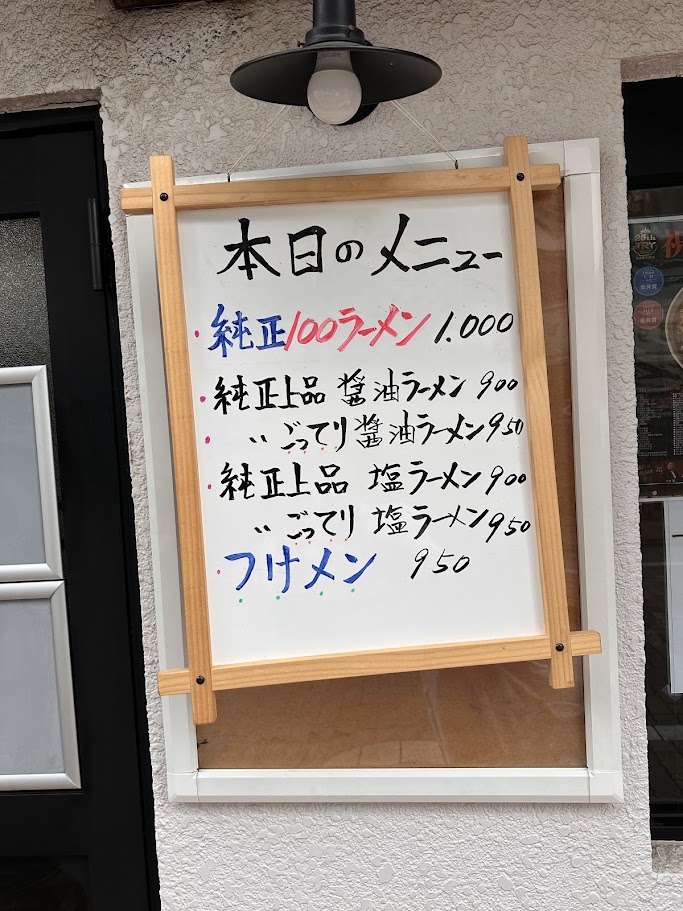 本日のメニュー
純正100ラーメン 1.000
純正上品 醤油ラーメン 900
〃 こってり醤油ラーメン 950
純正上品 塩ラーメン 900
〃 こってり塩ラーメン 950
つけメン 950
TRY